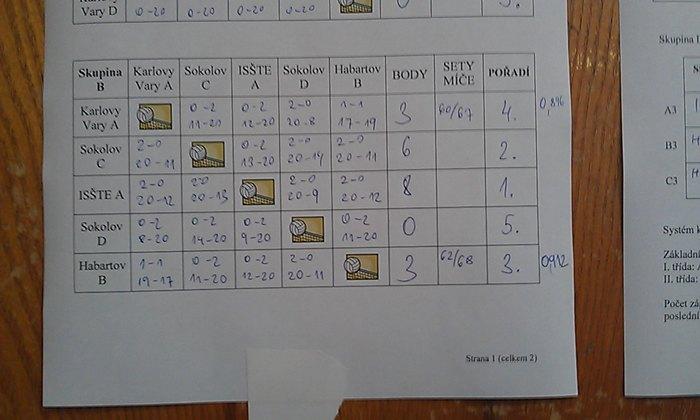 Karlovy
Vary D 0-20 0-20 0-20 0-20 0 5.
Skupina B Karlovy Vary A Sokolov C ISŠTE A Sokolov D Habartov B BODY SETY MÍČE POŘADÍ
Karlovy Vary A 0-2 0-2 2-0 1-1 3 60/67 4. 0,896
11-20 12-20 20-8 17-19
Sokolov C 2-0 0-2 2-0 2-0 6 2.
20-11 13-20 20-14 20-11
ISŠTE A 2-0 2-0 2-0 2-0 8 1.
20-12 20-13 20-9 20-12
Sokolov D 0-2 0-2 0-2 0-2 0 5.
8-20 14-20 9-20 11-20
Habartov B 1-1 0-2 0-2 2-0 3 62/68 3. 0,912
19-17 11-20 12-20 20-11
Strana 1 (celkem 2)
Skupina
A3
B3
C3
Systém
Základní
I. třída:
II. třída:
Počet
poslední